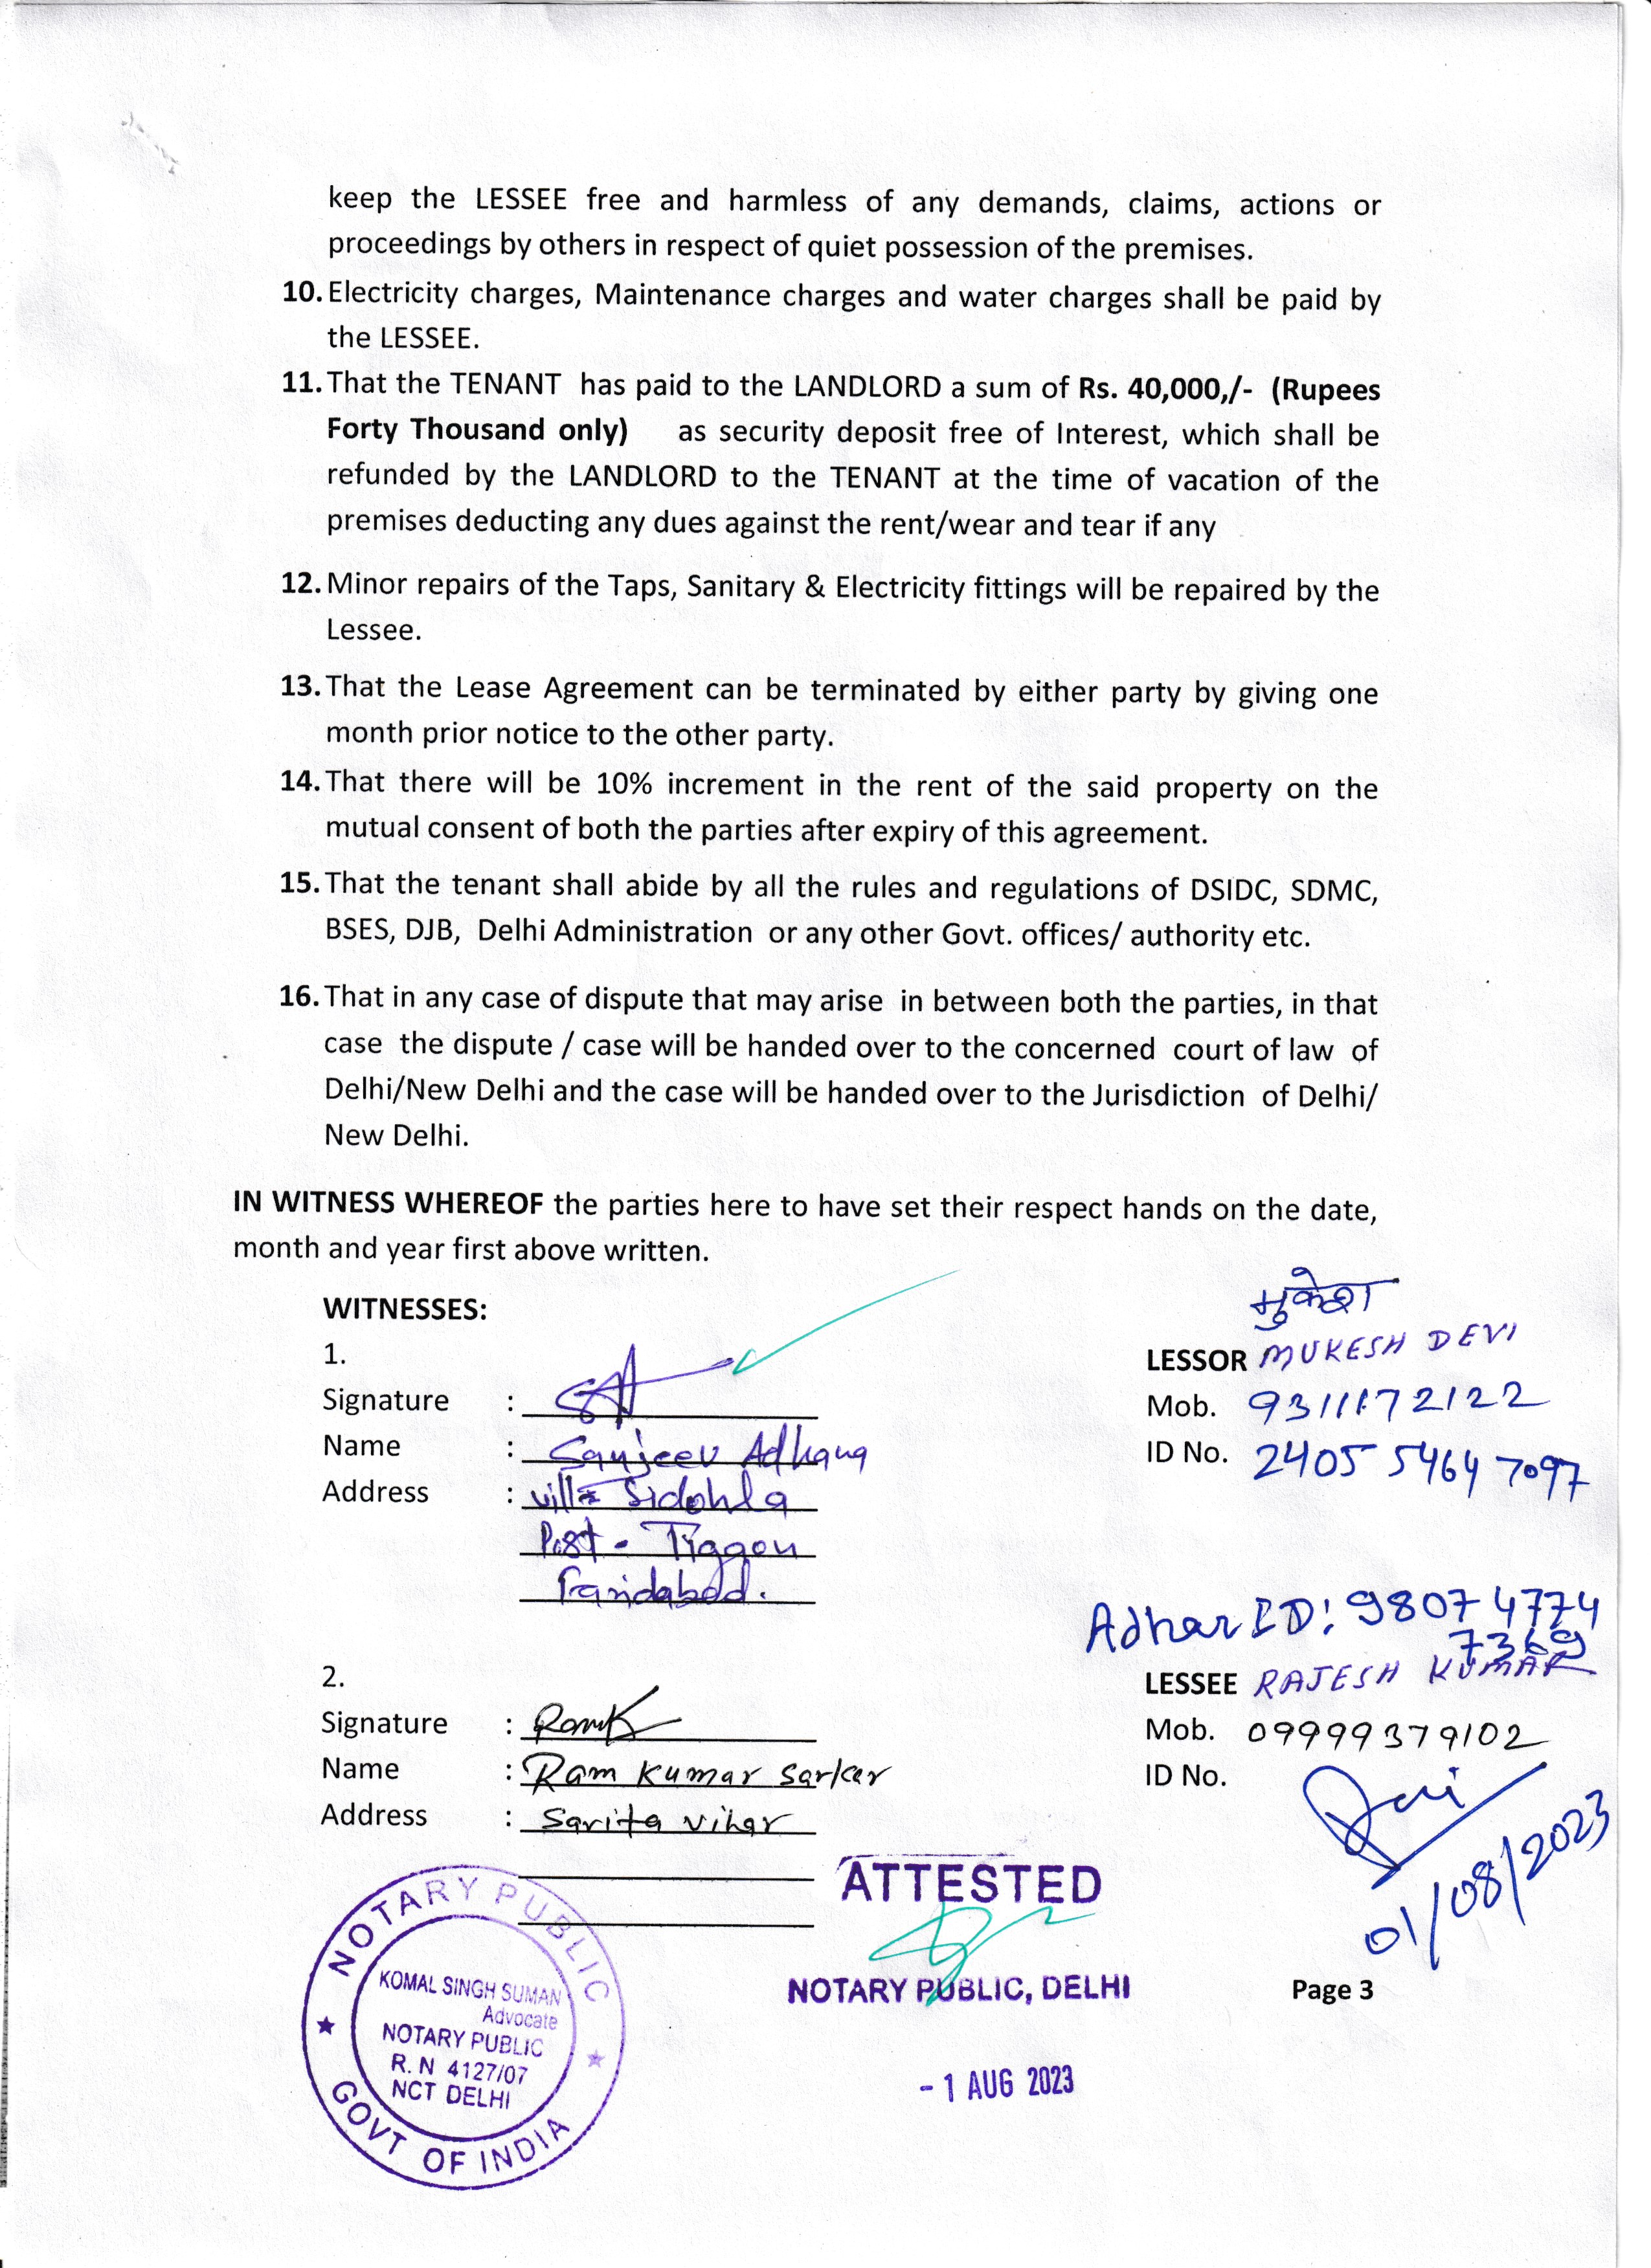 keep the LESSEE free and harmless of any demands, claims, actions or
proceedings by others in respect of quiet possession of the premises.
10. Electricity charges, Maintenance charges and water charges shall be paid by
the LESSEE.
11. That the TENANT has paid to the LANDLORD a sum of Rs. 40,000,/- (Rupees
Forty Thousand only) as security deposit free of Interest, which shall be
refunded by the LANDLORD to the TENANT at the time of vacation of the
premises deducting any dues against the rent/wear and tear if any
12. Minor repairs of the Taps, Sanitary & Electricity fittings will be repaired by the
Lessee.
13. That the Lease Agreement can be terminated by either party by giving one
month prior notice to the other party.
14. That there will be 10% increment in the rent of the said property on the
mutual consent of both the parties after expiry of this agreement.
15. That the tenant shall abide by all the rules and regulations of DSIDC, SDMC,
BSES, DJB, Delhi Administration or any other Govt. offices/ authority etc.
16. That in any case of dispute that may arise in between both the parties, in that
case the dispute / case will be handed over to the concerned court of law of
Delhi/New Delhi and the case will be handed over to the Jurisdiction of Delhi/
New Delhi.
IN WITNESS WHEREOF the parties here to have set their respect hands on the date,
month and year first above written.
WITNESSES:
1.
Signature :
Name : Sanjeev Adhana
Address : Vill- Sidohla
Post - Tiggon
Faridabad.
मुकेश
LESSOR MUKESH DEVI
Mob. 9311172122
ID No. 2405 5464 7097
2.
Signature : RamK
Name : Ram Kumar Sarker
Address : Sarita Vihar
Adhar ID: 9807 4774
7369
LESSEE RAJESH KUMAR
Mob. 09999379102
ID No.
01/08/2023
ATTESTED
NOTARY PUBLIC, DELHI
- 1 AUG 2023
NOTARY PUBLIC
KOMAL SINGH SUMAN
Advocate
NOTARY PUBLIC
R. N 4127/07
NCT DELHI
GOVT OF INDIA
Page 3